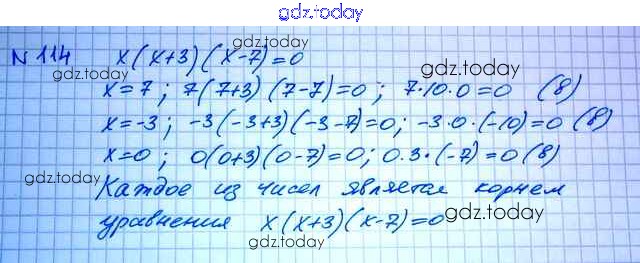 gdz.today
N 114 x(x+3)(x-7)=0
gdz.today
x=7; 7(7+3)(7-7)=0; 7·10·0=0 (в)
gdz.today
gdz.today
x=-3; -3(-3+3)(-3-7)=0; -3·0·(-10)=0 (в)
x=0; 0(0+3)(0-7)=0; 0·3·(-7)=0 (в)
gdz.today
gdz.today
gdz.today
Каждое из чисел является корнем
уравнения x(x+3)(x-7)=0
gdz.today
gdz.today